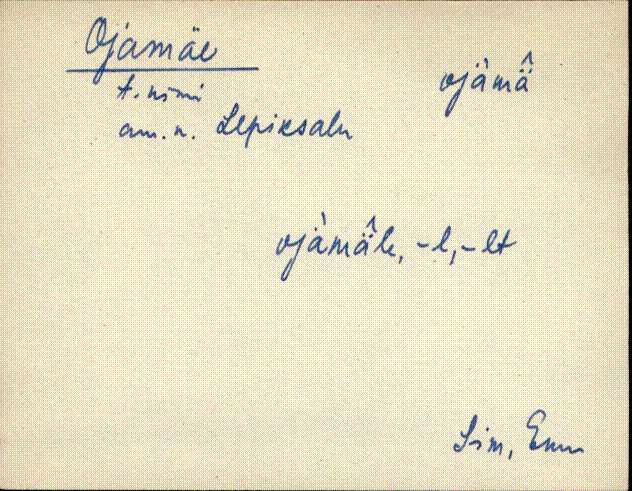 Ojamäe
ojàmä̂
t. nimi
am. n. Lepiksalu
ojàmä̂le, -l, -lt
Sim, Emu